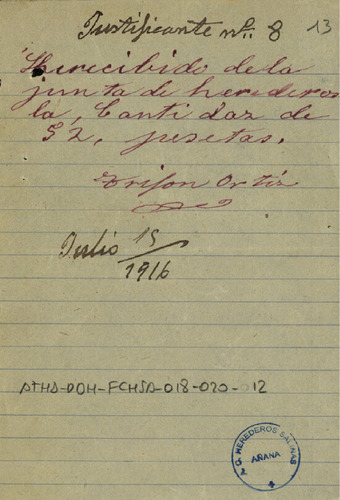 Justificante nº. 8
13
He recibido de la
junta de herederos
la, Cantidaz de
52, pesetas.
Trifon Ortiz
Julio 15
1916
ATHA-DOH-FCHSA-018-020-012
C. G. HEREDEROS SALINAS
AÑANA